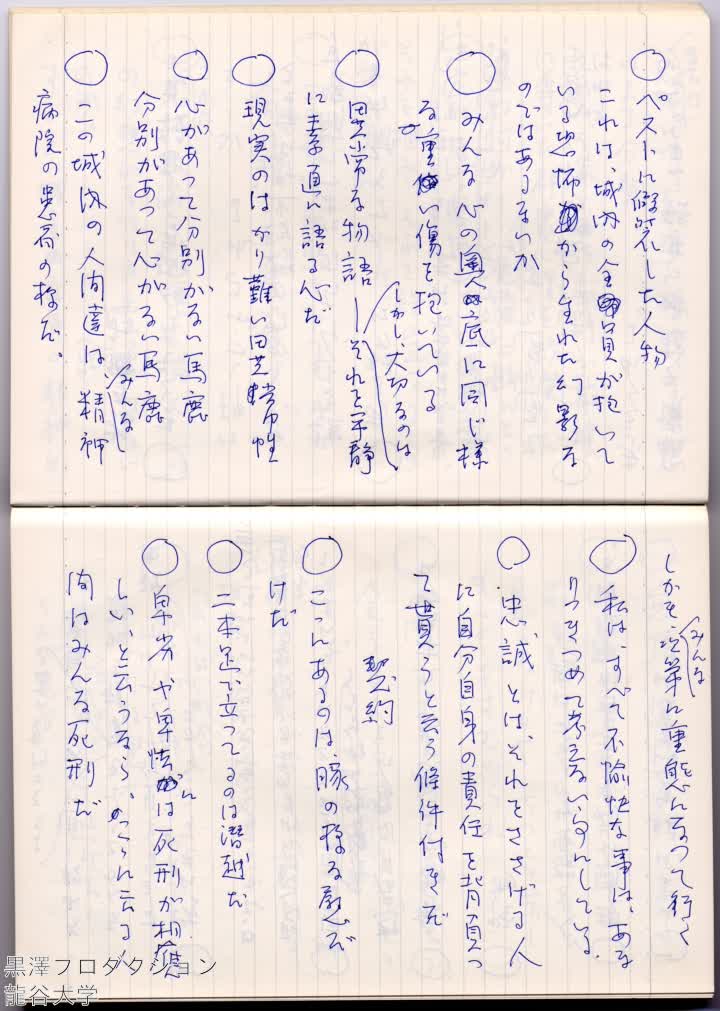 ○ ペストに仮装した人物
これは、城内の全員が抱いて
いる恐怖から生れた幻影な
のではあるまいか
○ みんな心の奥底に同じ様
な重い傷を抱いている
しかし、大切なのは、
○ 異常な物語―それを平静
に率直に語る心だ
○ 現実のはかり難い異常性
○ 心があつて分別がない馬鹿
分別があつて心がない馬鹿
○ この城内の人間達は、みんな精神
病院の患者の様だ。
しかも、みんな次第に重態になつて行く
○ 私は、すべて不愉快な事は、あま
りつきつめて考えない事にしている
○ 忠誠とは、それをささげる人
に自分自身の責任を背負つ
て貰うと云う條件付きだ
契約
○ こゝにあるのは、豚の様な慾だ
けだ
○ 二本足で立つてるのは潜越だ
○ 卑劣や卑怯には死刑が相應
しいと云うなら、
間はみんな死刑だ
黒澤プロダクション
龍谷大学